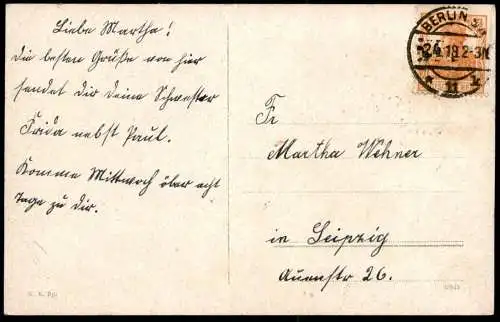 Liebe Martha!
die besten Grüße von hier
sendet dir deine Schwester
Frida nebst Paul.
Komme Mittwoch über acht
Tage zu dir.
BERLIN SW
19.2-3N
11
Fr
Martha Wehner
in Leipzig
Auenstr 26.